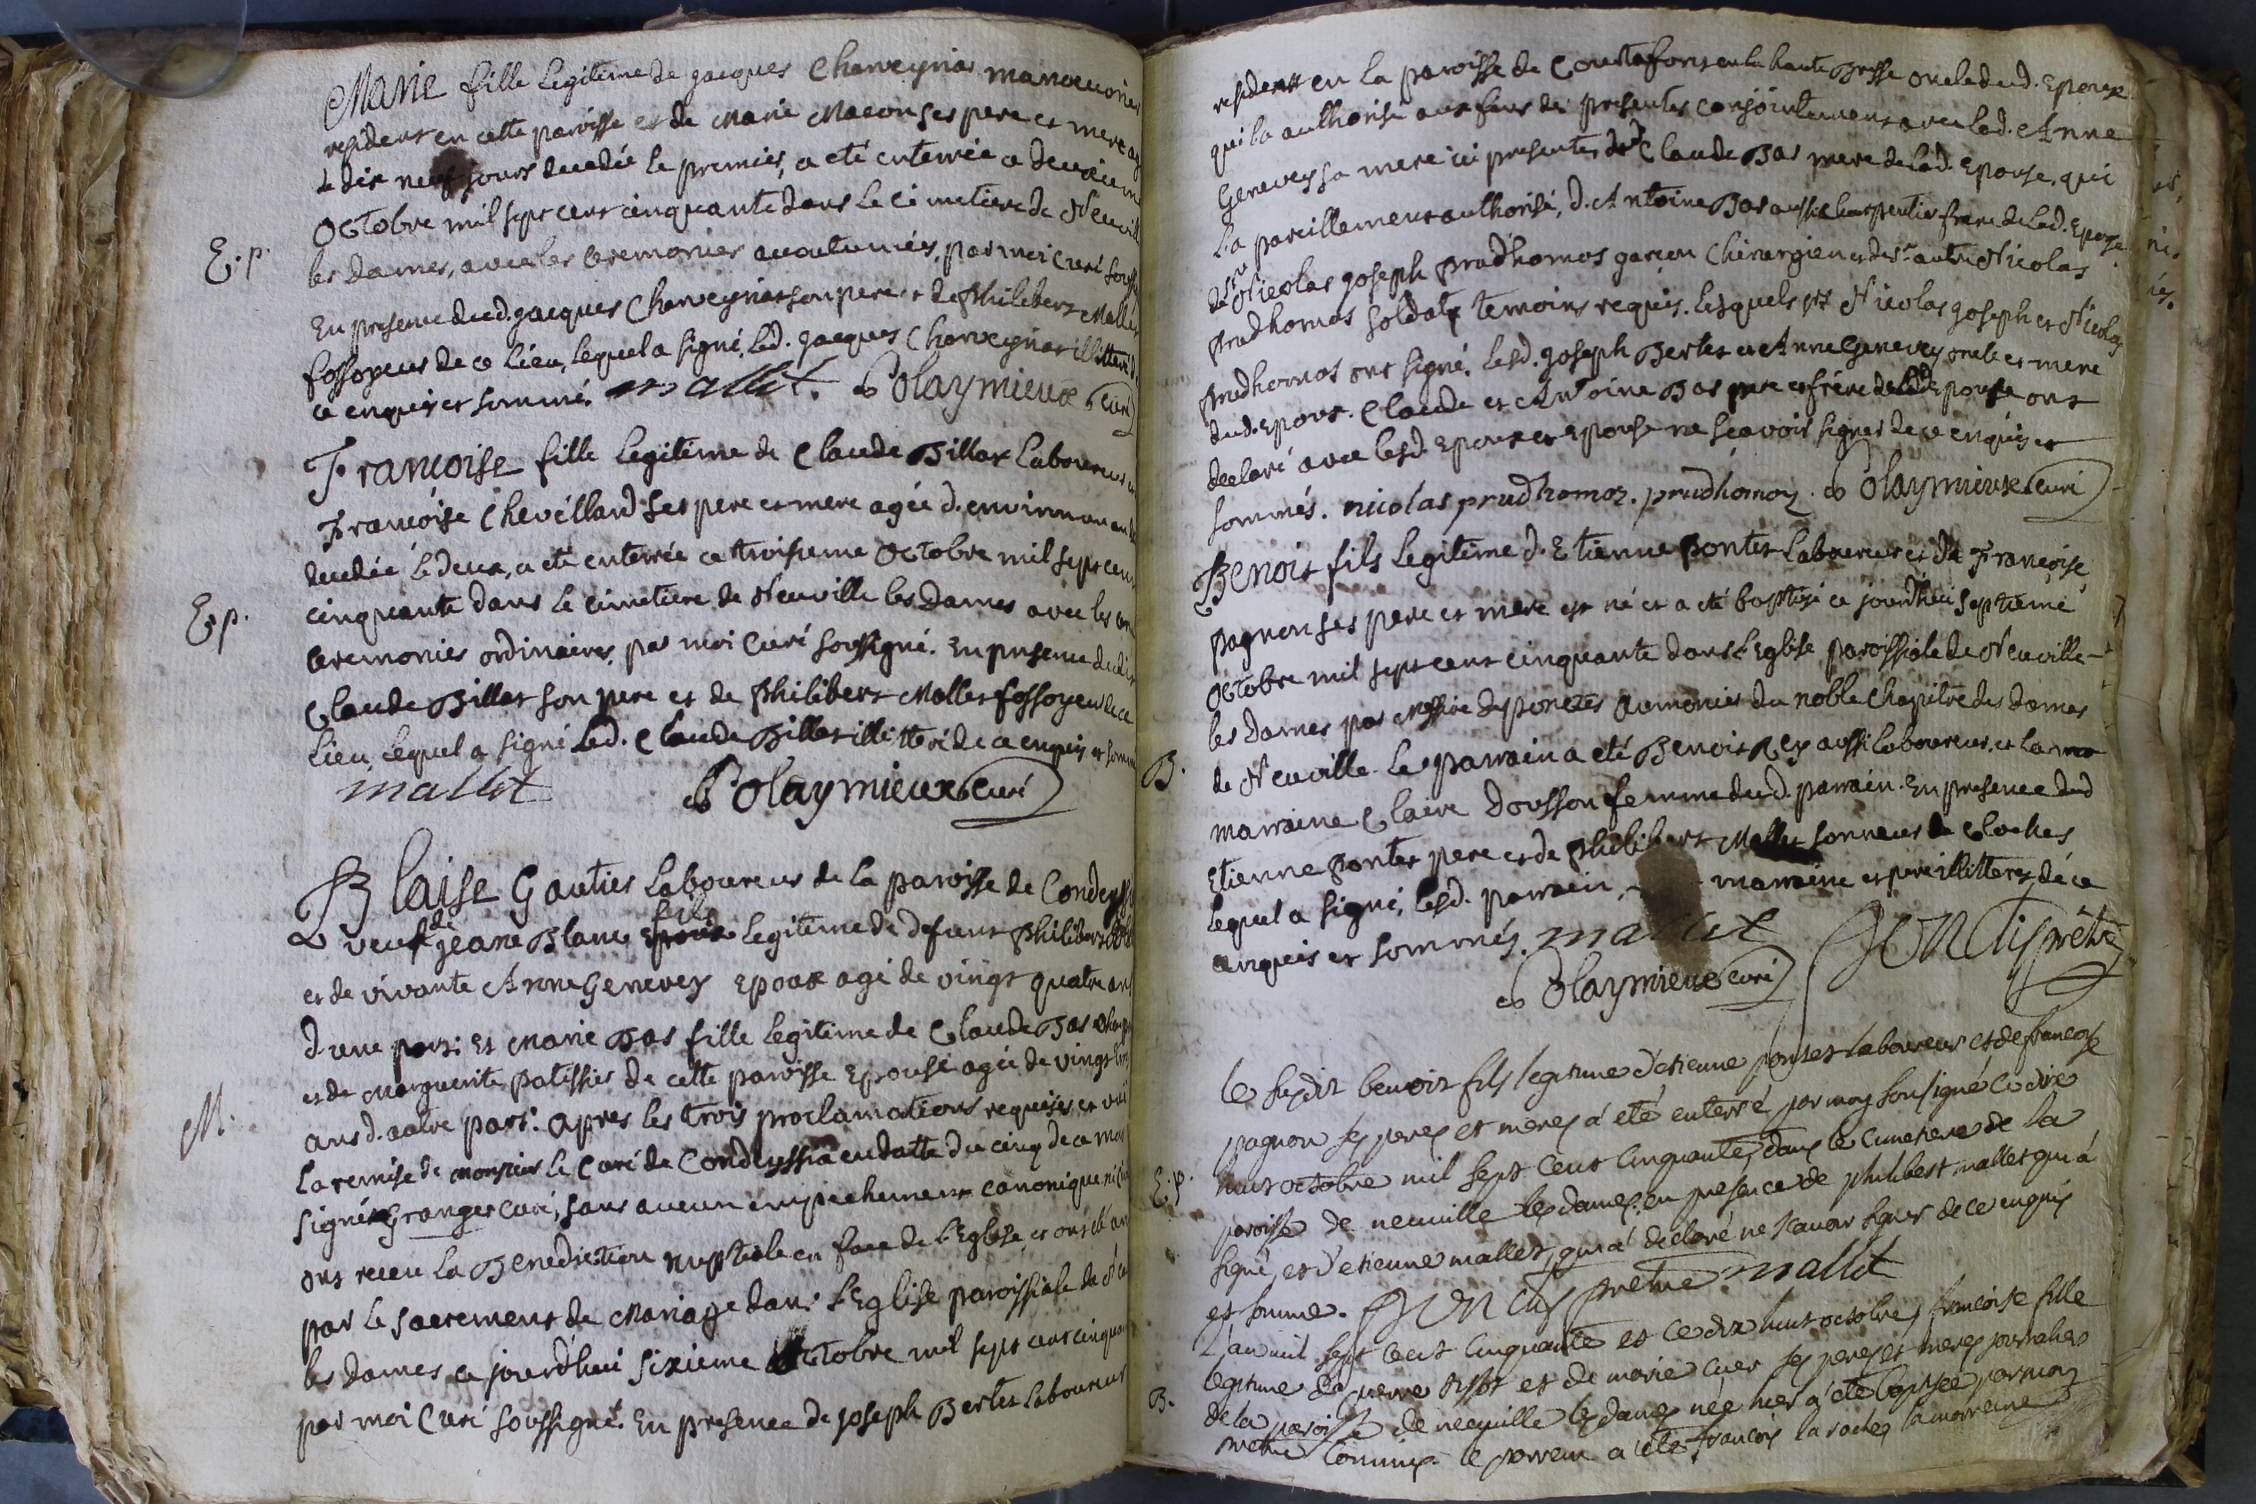 Marie fille Legitime de jacques Charveyriar manoeuvrier
resident en cette paroisse et de Marie Macon ses pere et mere
de dix neuf jours decedée le premier, a eté enterrée ce deuxieme
E. p.
Octobre mil sept cent cinquante dans le Cimetiere de Neuville
les Dames, avec les Ceremonies accoutumées, par moi Curé
En presence dud. jacques Charveyriar son pere et de Philibert Mallet
fossoyeur de ce Lieu, lequel a signé, led. jacques Charveyriar illitteré
ce enquis et sommé. mallet. Polaymieux Curé
Francoise fille Legitime de Claude Billar Laboureur
Francoise Chevillard ses pere et mere agée d'environ un an
decedée le deux, a eté enterrée ce troisieme Octobre mil sept cent
E. p.
cinquante dans le Cimetiere de Neuville les Dames avec les
Ceremonies ordinaires, par moi Curé soussigné. En presence dudit
Claude Billar son pere et de Philibert Mallet fossoyeur de ce
Lieu, lequel a signé led. Claude Billar illitteré de ce enquis et
mallet Polaymieux Curé
Blaise Gautier Laboureur de la paroisse de
veuf de jeane Blanc fils Legitime de defunt Philibert
et de vivante Anne Genevey Epoux agé de vingt quatre ans
d'une part: Et Marie Bas fille Legitime de Claude Bas
et de Marguerite patissier de cette paroisse Epouse agée de vingt
M.
ans d'autre part: apres les trois proclamations requises et vü
La remise de monsieur le Curé de Condeyssia en datte du cinq de ce mois
signé Granger Curé, sans aucun empechement canonique ni
ont receu la Benediction nuptiale en face de l'Eglise et ont eté
par le sacrement de Mariage dans l'Eglise paroissiale de
les dames ce jourd'hui sixieme Octobre mil sept cent
par moi Curé soussigné. En presence de joseph Bertet Laboureur
resident en la paroisse de en la haute Bresse oncle dud. Epoux
qui l'a authorisé aux fins des presentes conjointement avec led. Anne
Genevey sa mere ici presente, de Claude Bas pere de lad. Epouse, qui
l'a pareillement authorisé, d'Antoine Bas aussi charpentier frere de lad. Epouse
de Sr Nicolas joseph prudhomos garcon Chirurgien et de sr autre Nicolas
prudhomos soldat temoins requis. lesquels Nicolas joseph et Nicolas
prudhomos ont signé. Lesd. joseph Bertet et Anne Genevey oncle et mere
dud. Epoux. Claude et Antoine Bas pere et frere de lad. Epouse ont
declaré avec lesd. Epoux et Epouse ne scavoir signer de ce enquis et
sommés. nicolas prudhomoz. prudhomoz. Polaymieux Curé
Benoit fils Legitime d'Etienne pontet Laboureur et de Francoise
pagnon ses pere et mere est né et a eté baptisé ce jourd'hui septieme
Octobre mil sept cent cinquante dans l'Eglise paroissiale de Neuville
les Dames par Messire aumonier du noble Chapitre des dames
B.
de Neuville. Le parrain a eté Benoit Rey aussi Laboureur, et la
marraine Claire Dousson femme dud. parrain. En presence dud
Etienne pontet pere et de Philibert Mallet sonneur de Cloches
lequel a signé, lesd. parrain, marraine et pere illitterés de ce
enquis et sommés. mallet prêtre
Polaymieux Curé
le susdit benoit fils legitime d'etienne pontet laboureur et de francoise
pagnon ses peres et meres a été enterré par moy sousigné ce dixe
E. p.
huit octobre mil sept cent cinquante, dans le cimetiere de la
paroisse de neuville les dames, en presence de philibert mallet qui a
signé, et d'etienne mallet, qui a declaré ne scavoir signer de ce enquis
et sommé. prêtre mallet
L'an mil sept cent cinquante et ce dix huit octobre, francoise fille
legitime de pierre et de marie ses peres et meres
B.
de la paroisse de neuville les dames née hier a été baptisée par moy
prêtre commis. le parrein a été francois la marreine